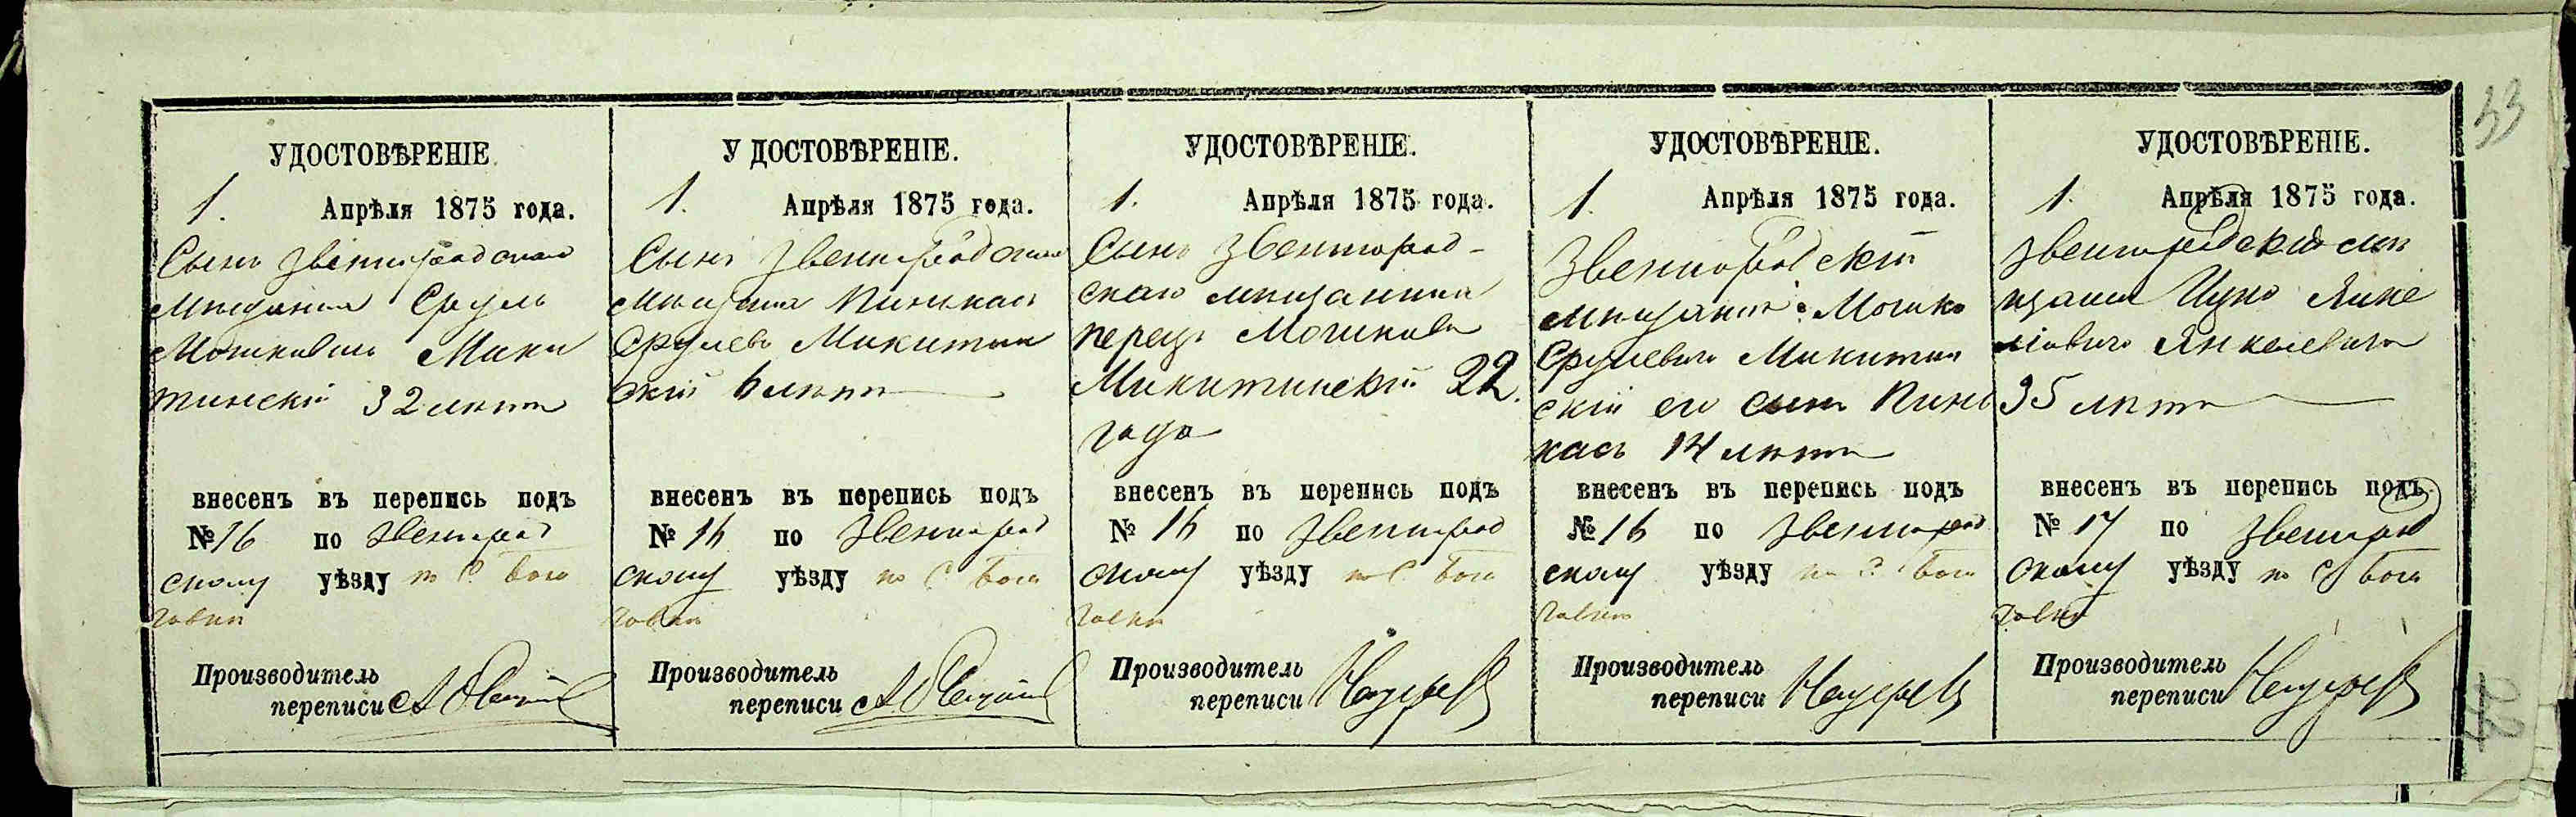 33
УДОСТОВѢРЕНІЕ.
1. Апрѣля 1875 года.
Сынъ Звенигородскаго
мѣщанина Сруль
Мошковичъ Мики
тинскій 32 лѣтъ
внесенъ въ перепись подъ
№ 16 по Звенигород
скому уѣзду по С.
Производитель
переписи
УДОСТОВѢРЕНІЕ.
1. Апрѣля 1875 года.
Сынъ Звенигородскаго
мѣщанина Пинькась
Срулевъ Микитин
скій 6 лѣтъ
внесенъ въ перепись подъ
№ 16 по Звенигород
скому уѣзду по С.
Производитель
переписи
УДОСТОВѢРЕНІЕ.
1. Апрѣля 1875 года.
Сынъ Звенигород-
скаго мѣщанина
Перецъ Мошковъ
Микитинскій 22.
года
внесенъ въ перепись подъ
№ 16 по Звенигород
скому уѣзду по С.
Производитель
переписи
УДОСТОВѢРЕНІЕ.
1. Апрѣля 1875 года.
Звенигородскій
мѣщанинъ Мошко
Срулевичъ Микитин
скій его сынъ Пинь
кась 14 лѣтъ
внесенъ въ перепись подъ
№ 16 по Звенигород
скому уѣзду
Производитель
переписи
УДОСТОВѢРЕНІЕ.
1. Апрѣля 1875 года.
Звенигородскій мѣ
щанинъ Ицко Янке
левичъ Янкелевичъ
35 лѣтъ
внесенъ въ перепись подъ
№ 17 по Звенигород
скому уѣзду по С.
Производитель
переписи